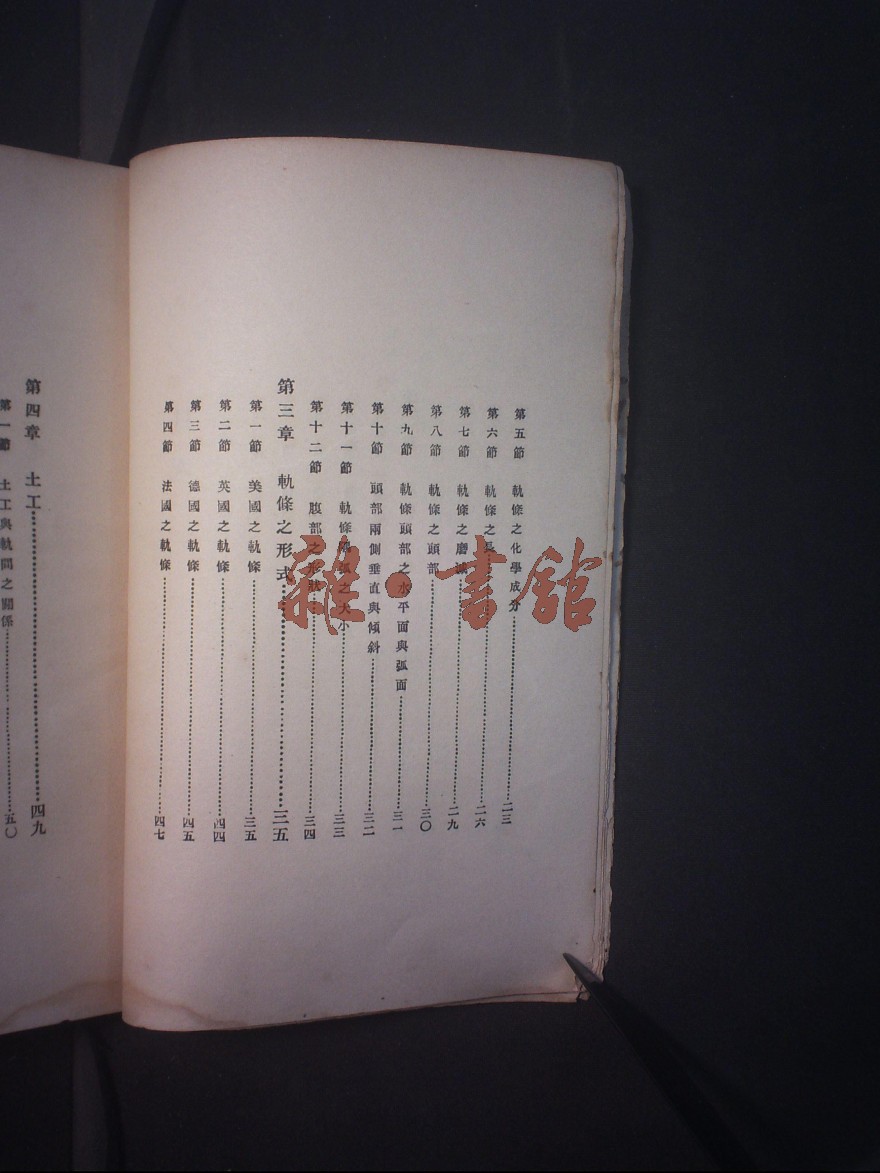 第五節 軌條之化學成分……二三
第六節 軌條之長……二六
第七節 軌條之磨……二九
第八節 軌條之頭部……三〇
第九節 軌條頭部之水平面與弧面……三一
第十節 頭部兩側垂直與傾斜……三二
第十一節 軌條之大小……三三
第十二節 腹部之形狀……三四
第三章 軌條之形式……三五
第一節 美國之軌條……三五
第二節 英國之軌條……四四
第三節 德國之軌條……四五
第四節 法國之軌條……四七
第四章 土工……四九
第一節 土工與軌間之關係……五〇
雜·書館